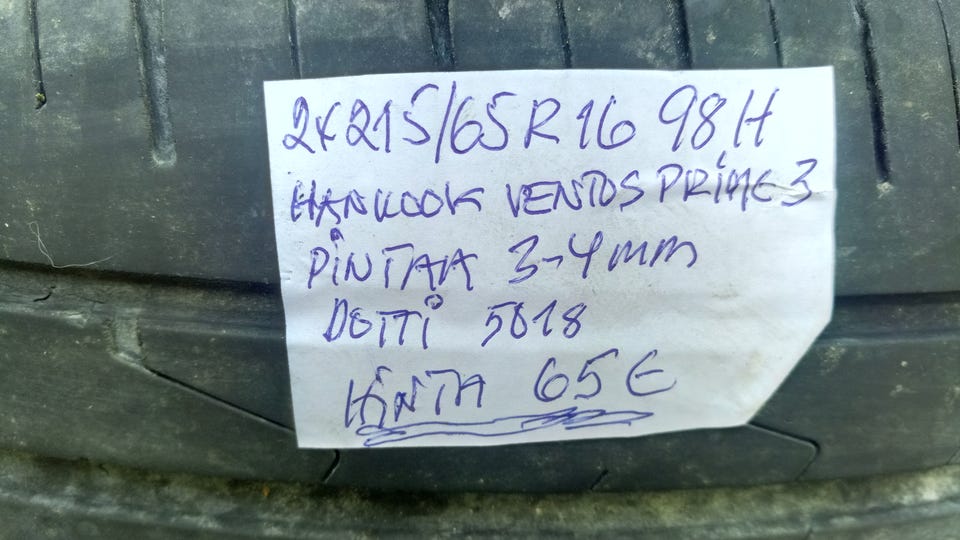 2X215/65R16 98H
HANKOOK VENTOS PRIME 3
PINTAA 3-4mm
DOTTI 5018
HINTA 65€